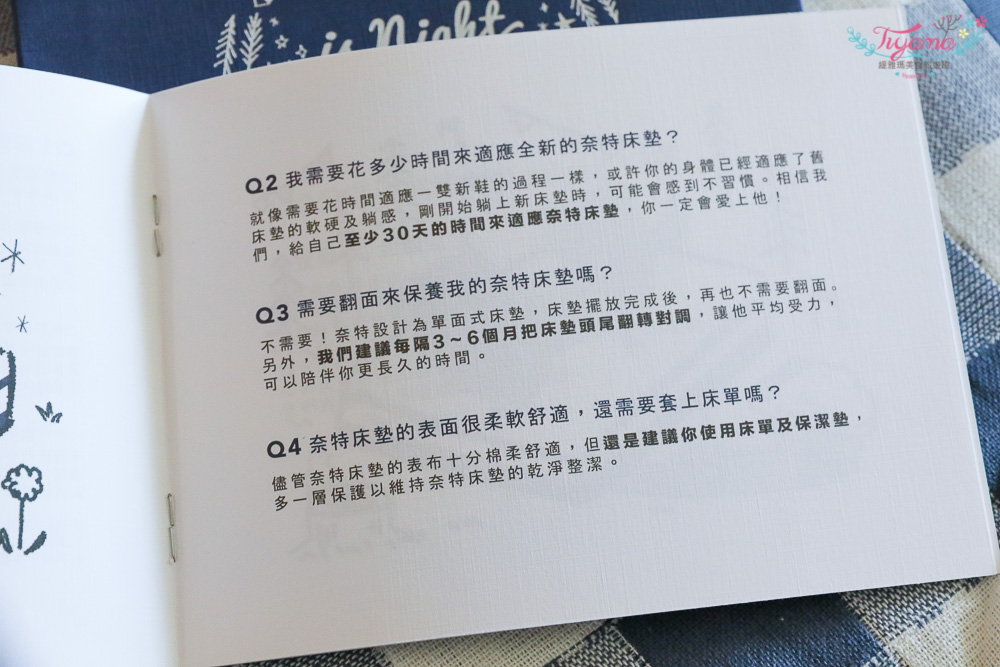 is Night
Tiyama
Q2 我需要花多少時間來適應全新的奈特床墊？
就像需要花時間適應一雙新鞋的過程一樣，或許你的身體已經適應了舊
床墊的軟硬及躺感，剛開始躺上新床墊時，可能會感到不習慣。相信我
們，給自己至少30天的時間來適應奈特床墊，你一定會愛上他！
Q3 需要翻面來保養我的奈特床墊嗎？
不需要！奈特設計為單面式床墊，床墊擺放完成後，再也不需要翻面。
另外，我們建議每隔3~6個月把床墊頭尾翻轉對調，讓他平均受力，
可以陪伴你更長久的時間。
Q4 奈特床墊的表面很柔軟舒適，還需要套上床單嗎？
儘管奈特床墊的表布十分棉柔舒適，但還是建議你使用床單及保潔墊，
多一層保護以維持奈特床墊的乾淨整潔。